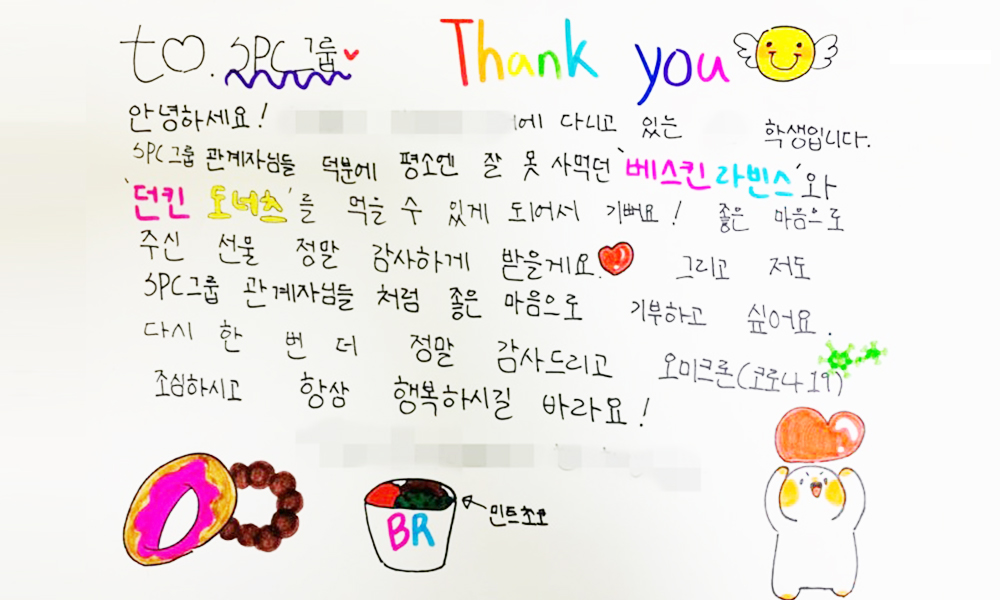 to. SPC그룹 Thank you
안녕하세요! 에 다니고 있는 학생입니다.
SPC그룹 관계자님들 덕분에 평소엔 잘 못 사먹던 '베스킨 라빈스'와
'던킨 도너츠'를 먹을 수 있게 되어서 기뻐요! 좋은 마음으로
주신 선물 정말 감사하게 받을게요. 그리고 저도
SPC그룹 관계자님들 처럼 좋은 마음으로 기부하고 싶어요.
다시 한 번 더 정말 감사드리고 오미크론(코로나19)
조심하시고 항상 행복하시길 바라요!
BR
민트초코